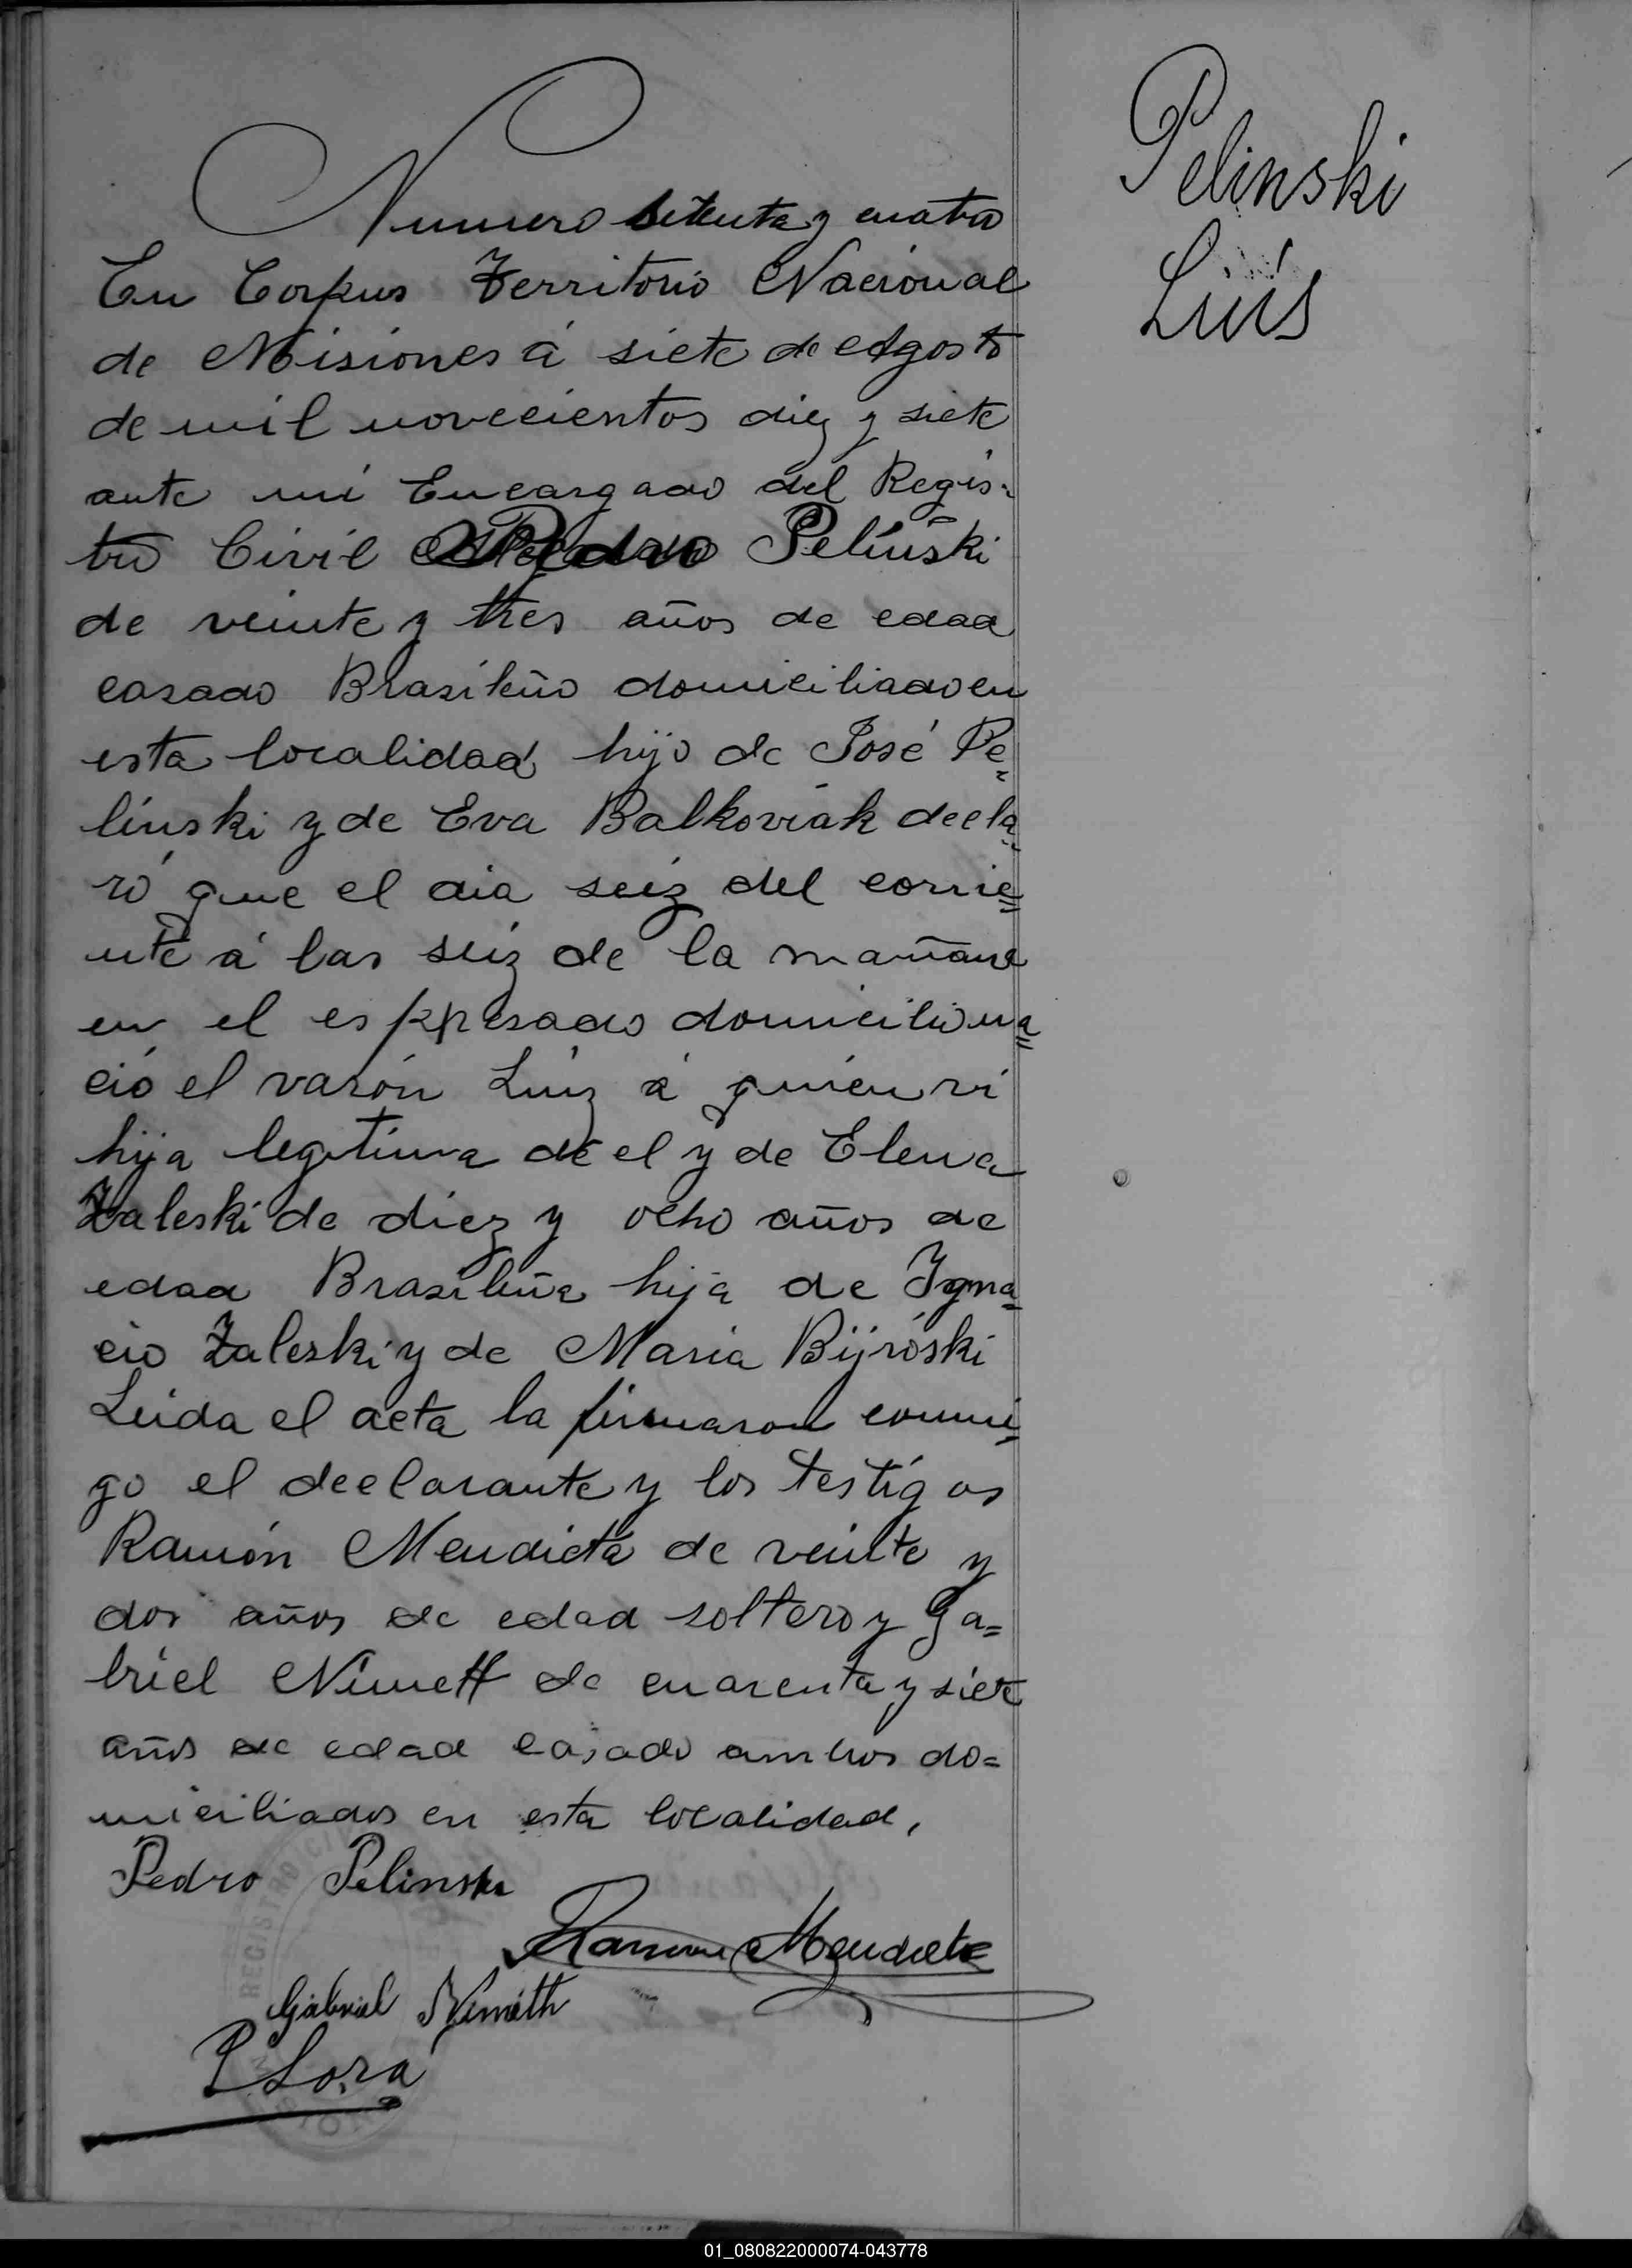 Pelinski
Luís
Numero setenta y cuatro
En Corpus Territorio Nacional
de Misiones á siete de Agosto
de mil novecientos diez y siete
ante mi Encargado del Regis-
tro Civil Pedro Pelinski
de veinte y tres años de edad
casado Brasileño domiciliado en
esta localidad hijo de José Pe-
linski y de Eva Balkoviak decla-
ró que el dia seiz del corrie=
nte á las seiz de la mañana
en el espresado domicilio na=
ció el varón Luiz á quién vi
hija legitima de el y de Elena
Zaleski de diez y ocho años de
edad Brasileña hija de Igna=
cio Zaleski y de Maria Bijroski
Leida el acta la firmaron conmi=
go el declarante y los testigos
Ramón Mendieta de veinte y
dos años de edad soltero y Ga=
briel Nimett de cuarenta y siete
años de edad casado ambos do=
miciliados en esta localidad,
Pedro Pelinski
Ramon Mendieta
Gabriel Nimeth
P Lora
REGISTRO CI
01_080822000074-043778